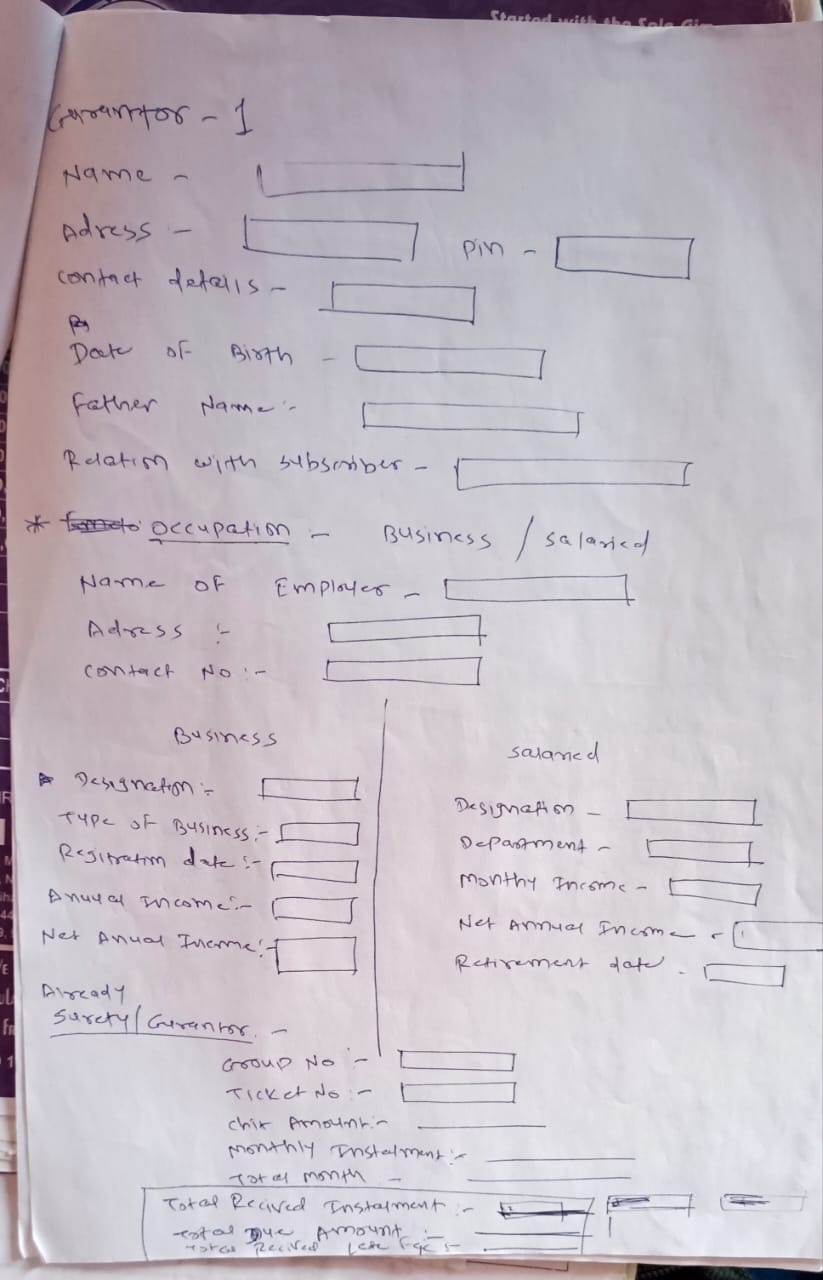 Started with the Solo Gi
Gurantor - 1
Name -
Adress - Pin -
Contact details -
Date of Birth -
Father Name :-
Relation with subscriber -
* Occupation - Business / Salaried
Name of Employer -
Adress :-
Contact No :-
Business
Salaried
Designation :-
Designation -
Type of Business :-
Department -
Registration date :-
Monthy Income -
Anuual Income :-
Net Annual Income -
Net Anual Income :-
Retirement date -
Already
Surety/Gurantor. -
Group No :-
Ticket No :-
Chit Amount :-
Monthly Instalment :-
Total Month -
Total Recived Instalment :-
Total Due Amount :-
Total Recived Late Fee :-